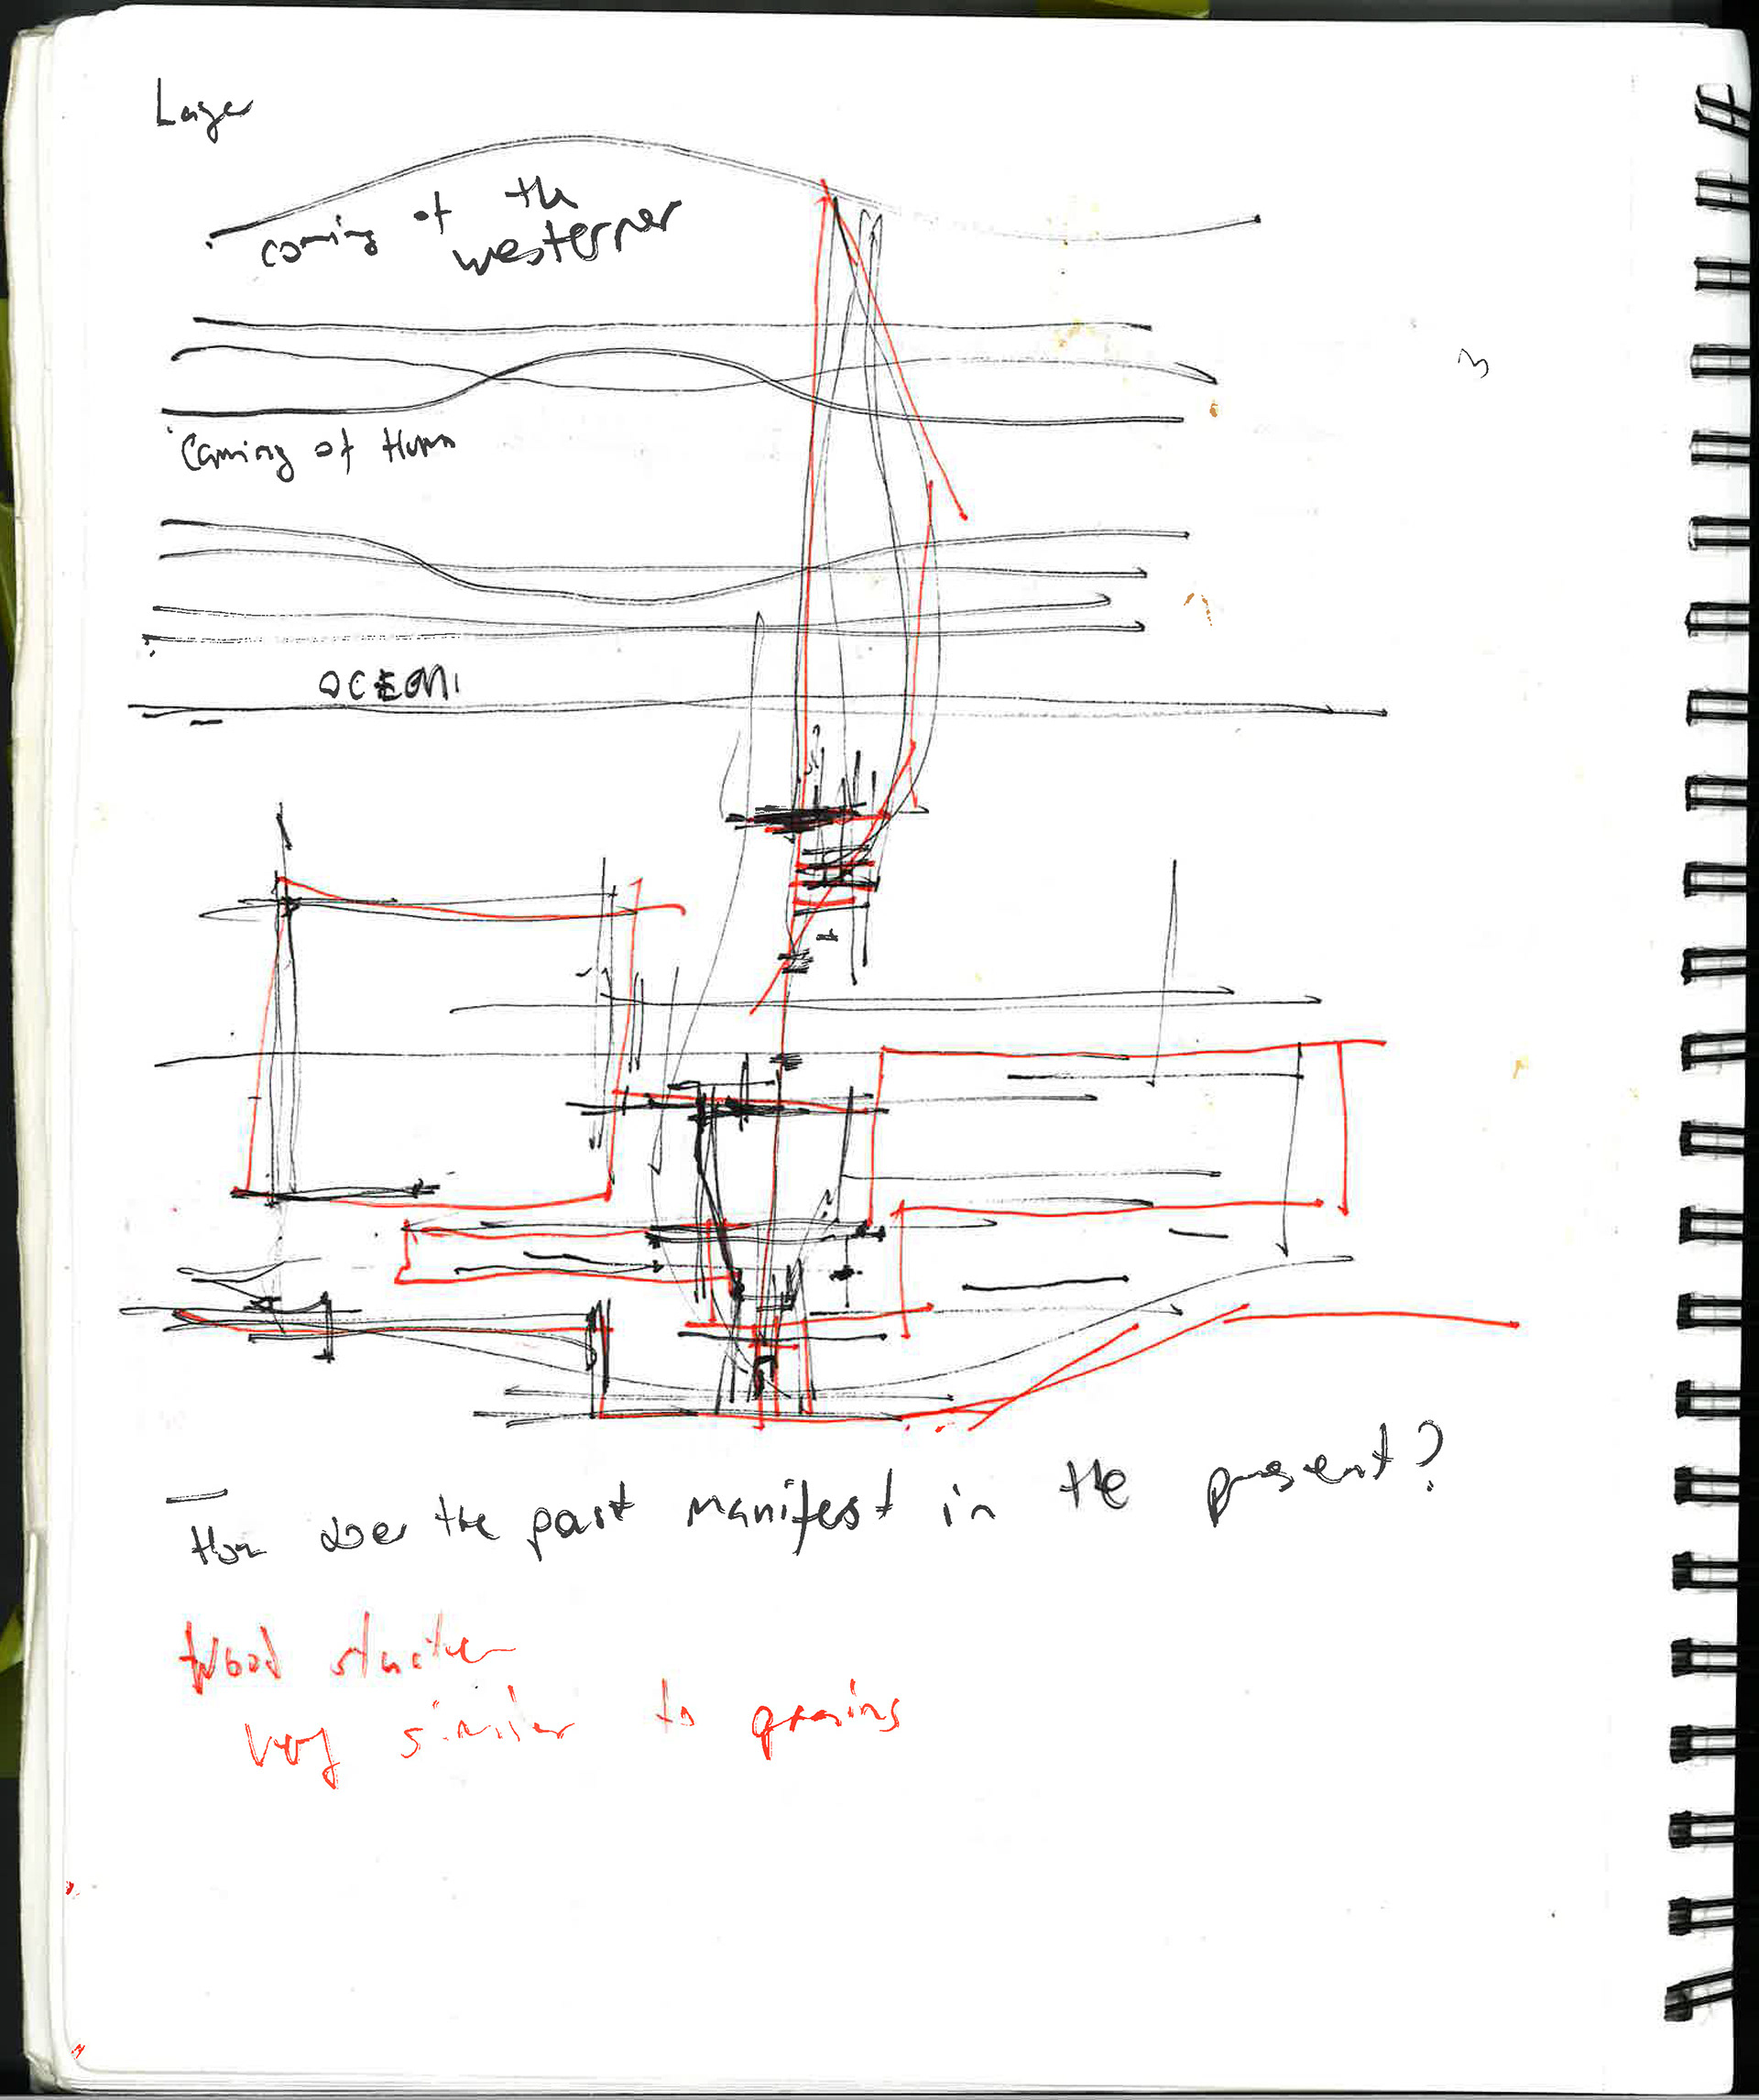 Layer
coming of the
westerner
Coming of Human
OCEAN
How does the past manifest in the present?
Wood structure
very similar to grains